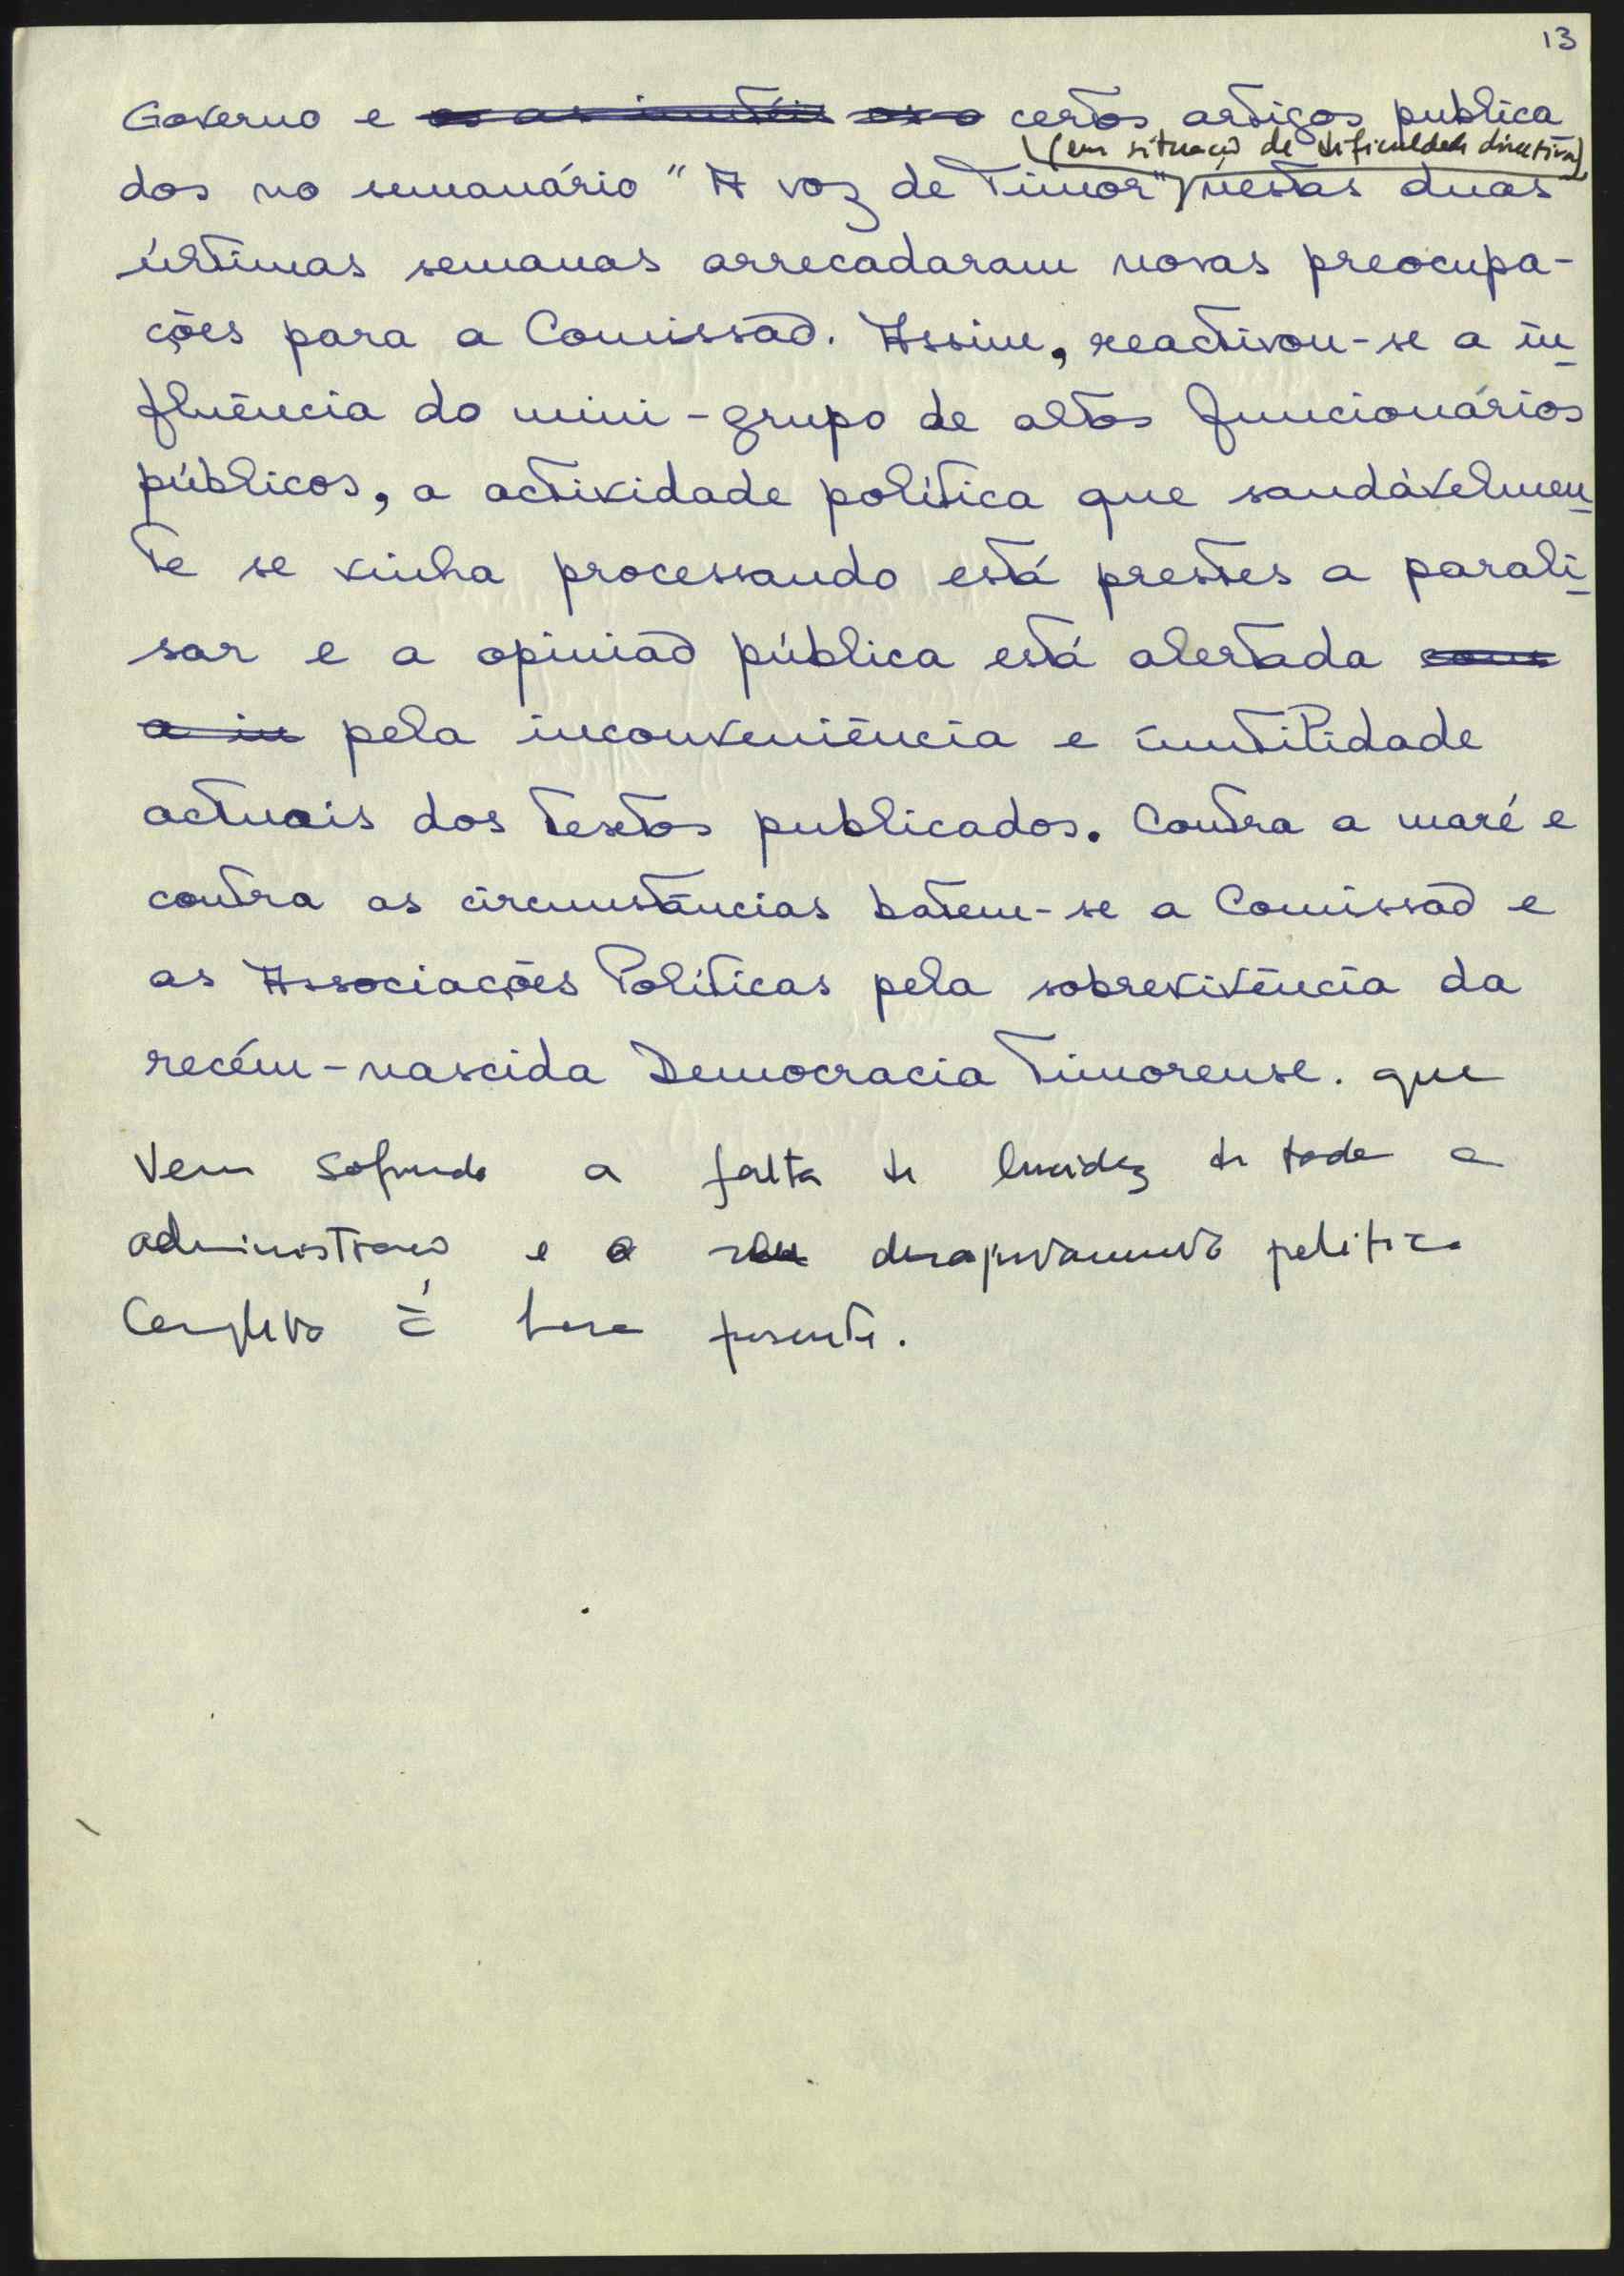 13
Governo e ~~os as inutéis os o~~ certos artigos publica
(em situação de dificuldade directiva)
dos no semanário "A voz de Timor" nestas duas
últimas semanas arrecadaram novas preocupa-
ções para a Comissão. Assim, reactivou-se a in
fluência do mini-grupo de altos funcionários
públicos, a actividade política que saudávelmen
te se vinha processando está prestes a parali
sar e a opinião pública está alertada
~~a in~~ pela inconveniência e inutilidade
actuais dos textos publicados. Contra a maré e
contra as circunstâncias batem-se a Comissão e
as Associações Políticas pela sobrevivência da
recém-nascida Democracia Timorense. que
Vem sofrendo a falta de lucidez de toda a
administração e o politico
Completo É hora presente.